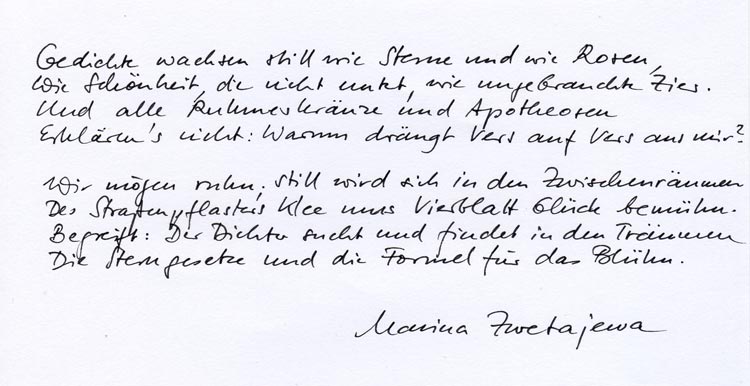 Gedichte wachsen still wie Sterne und wie Rosen,
Wie Schönheit, die nicht nutzt, wie ungebrauchte Zier.
Und alle Ruhmeskränze und Apotheosen
Erklären's nicht: Warum drängt Vers auf Vers aus mir?
Wir mögen ruhn, still wird sich in den Zwischenräumen
Des Straßenpflasters Klee ums Vierblatt Glück bemühn.
Begreift: Der Dichter sucht und findet in den Träumen
Die Sterngesetze und die Formel für das Blühn.
Marina Zwetajewa